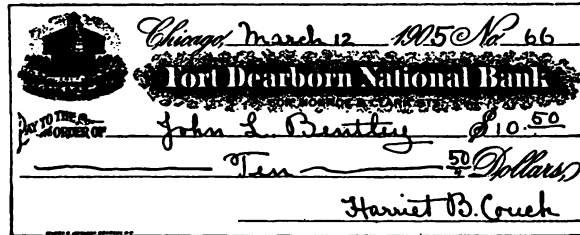 Chicago, March 12 1905 No. 66
Fort Dearborn National Bank
COR. MONROE & CLARK STS.
PAY TO THE ORDER OF John L. Bentley $10.50
Ten 50/ Dollars,
Harriet B. Couch